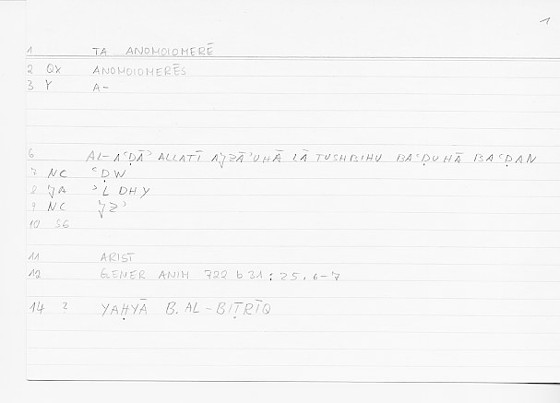 1
1 TA ANOMOIOMERĒ
2 QX ANOMOIOMERĒS
3 Y A-
6 AL-AʿḌĀʾ ALLATĪ AǦZĀʾUHĀ LĀ TUSHBIHU BAʿḌUHĀ BAʿḌAN
7 NC ʿḌW
8 ǦA ʾL DHY
9 NC ǦZʾ
10 56
11 ARIST
12 GENER ANIM 722 b 31 : 25, 6-7
14 2 YAḤYĀ B. AL-BIṬRĪQ